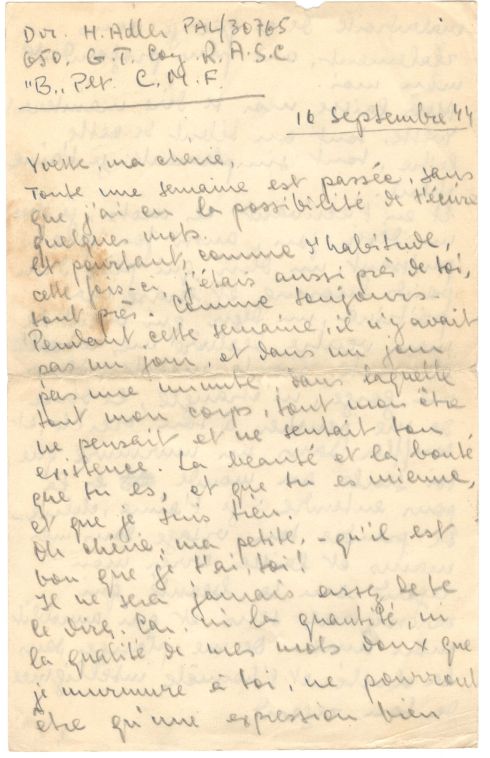 Dvr. H. Adler PAL/30765
650. G.T. Coy. R.A.S.C
"B„ Plt. C.M.F.
16 Septembre 44
Yvette, ma chérie,
Toute une semaine est passée, sans
que j'ai eu la possibilité de t'écrire
quelques mots.
Et pourtant, comme d'habitude,
cette fois-ci, j'étais aussi près de toi,
tout près. Comme toujours.
Pendant cette semaine, il n'y avait
pas un jour, et dans un jour
pas une minute, dans laquelle
tout mon corps, tout mon être
ne pensait et ne sentait ton
existence. La beauté et la bonté
que tu es, et que tu es mienne,
et que je suis tien.
Oh chérie, ma petite, - qu'il est
bon que je t'ai, toi!
Il ne sera jamais assez de te
le dire. Car ni la quantité, ni
la qualité de mes mots doux que
je murmure à toi, ne pourront
être qu'une expression bien